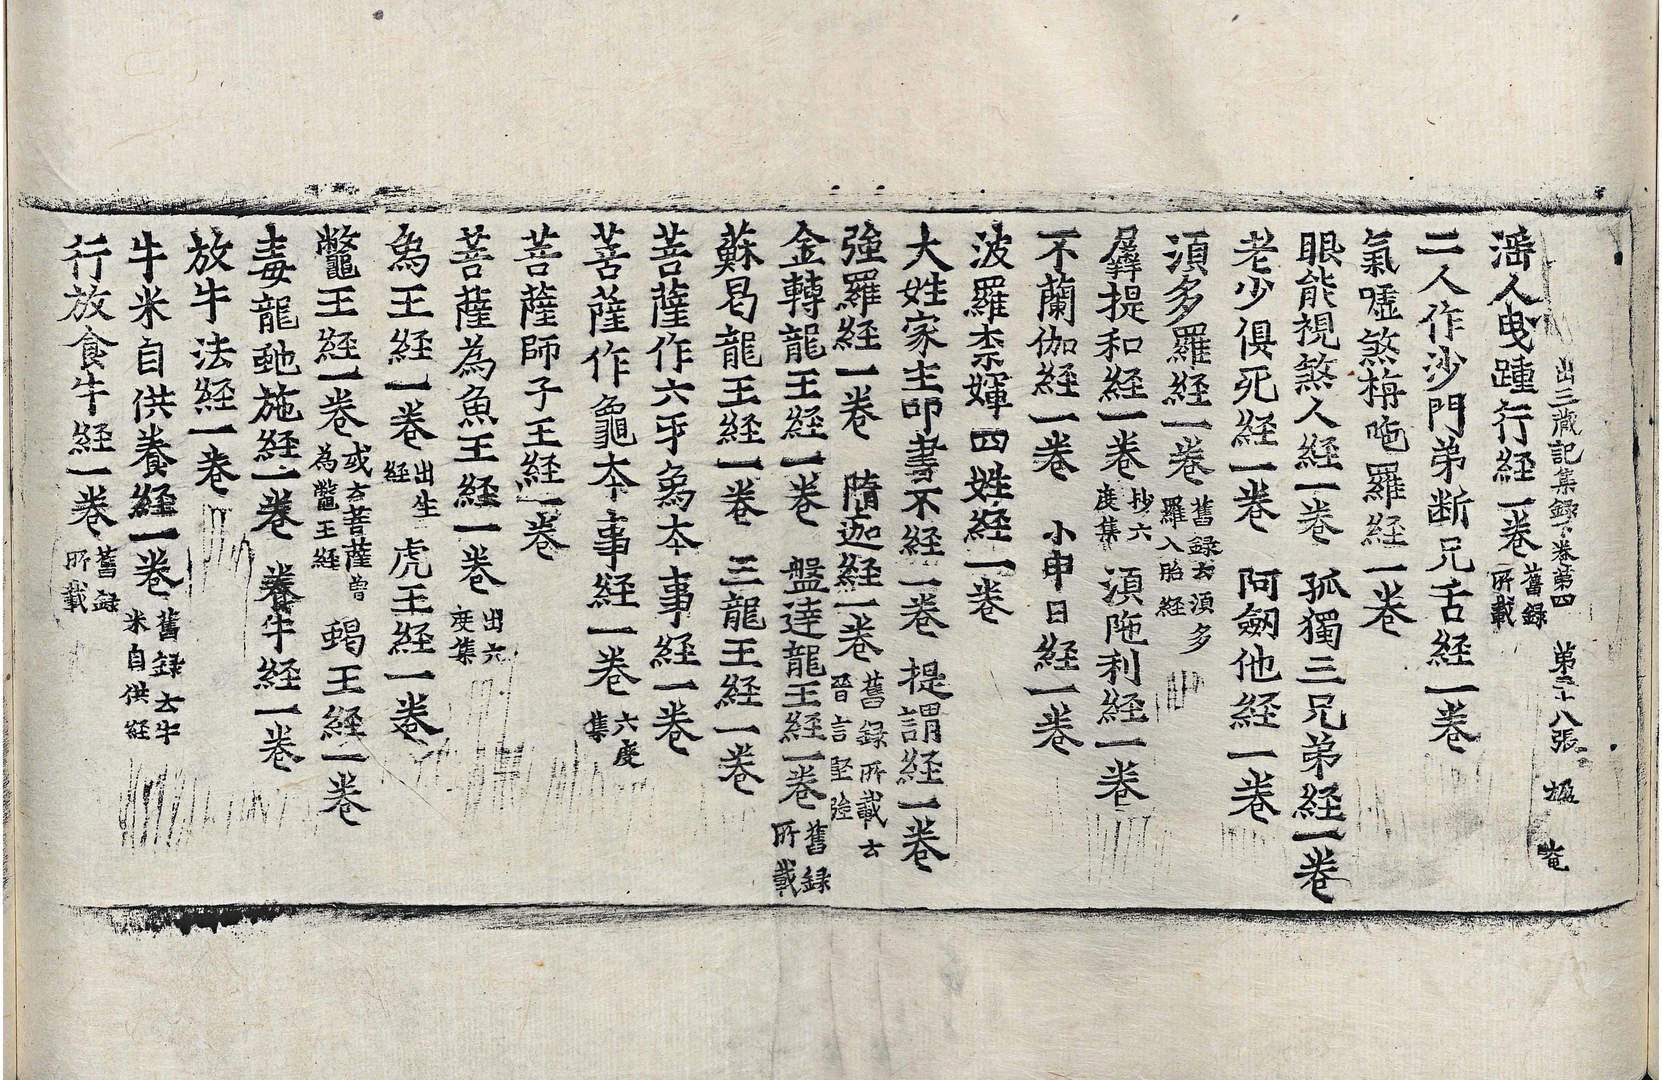 出三藏記集録下卷第四 第三十八張
人曳踵行経一卷 舊録所載
二人作沙門弟断兄舌経一卷
氣噓煞栴陁羅経一卷
眼能視煞人経一卷 孤獨三兄弟経一卷
老少俱死経一卷 阿劒他経一卷
須多羅経一卷 舊録云須多羅入胎経
提和経一卷 抄六度集 須陁利経一卷
不蘭伽経一卷 小申日経一卷
波羅柰媈四姓経一卷
大姓家主叩書不経一卷 提謂経一卷
強羅経一卷 隋迦経一卷 舊録所載云晉言堅強
金轉龍王経一卷 盤逹龍王経一卷 舊録所載
蘇曷龍王経一卷 三龍王経一卷
菩薩作六牙象本事経一卷
菩薩作龜本事経一卷 六度集
菩薩師子王経一卷
菩薩為魚王経一卷 出六度集
象王経一卷 出生経 虎王経一卷
鼈王経一卷 或云菩薩曾為鼈王経 蝎王経一卷
毒龍虵施経一卷 養牛経一卷
放牛法経一卷
牛米自供養経一卷 舊録云牛米自供経
行放食牛経一卷 舊録所載